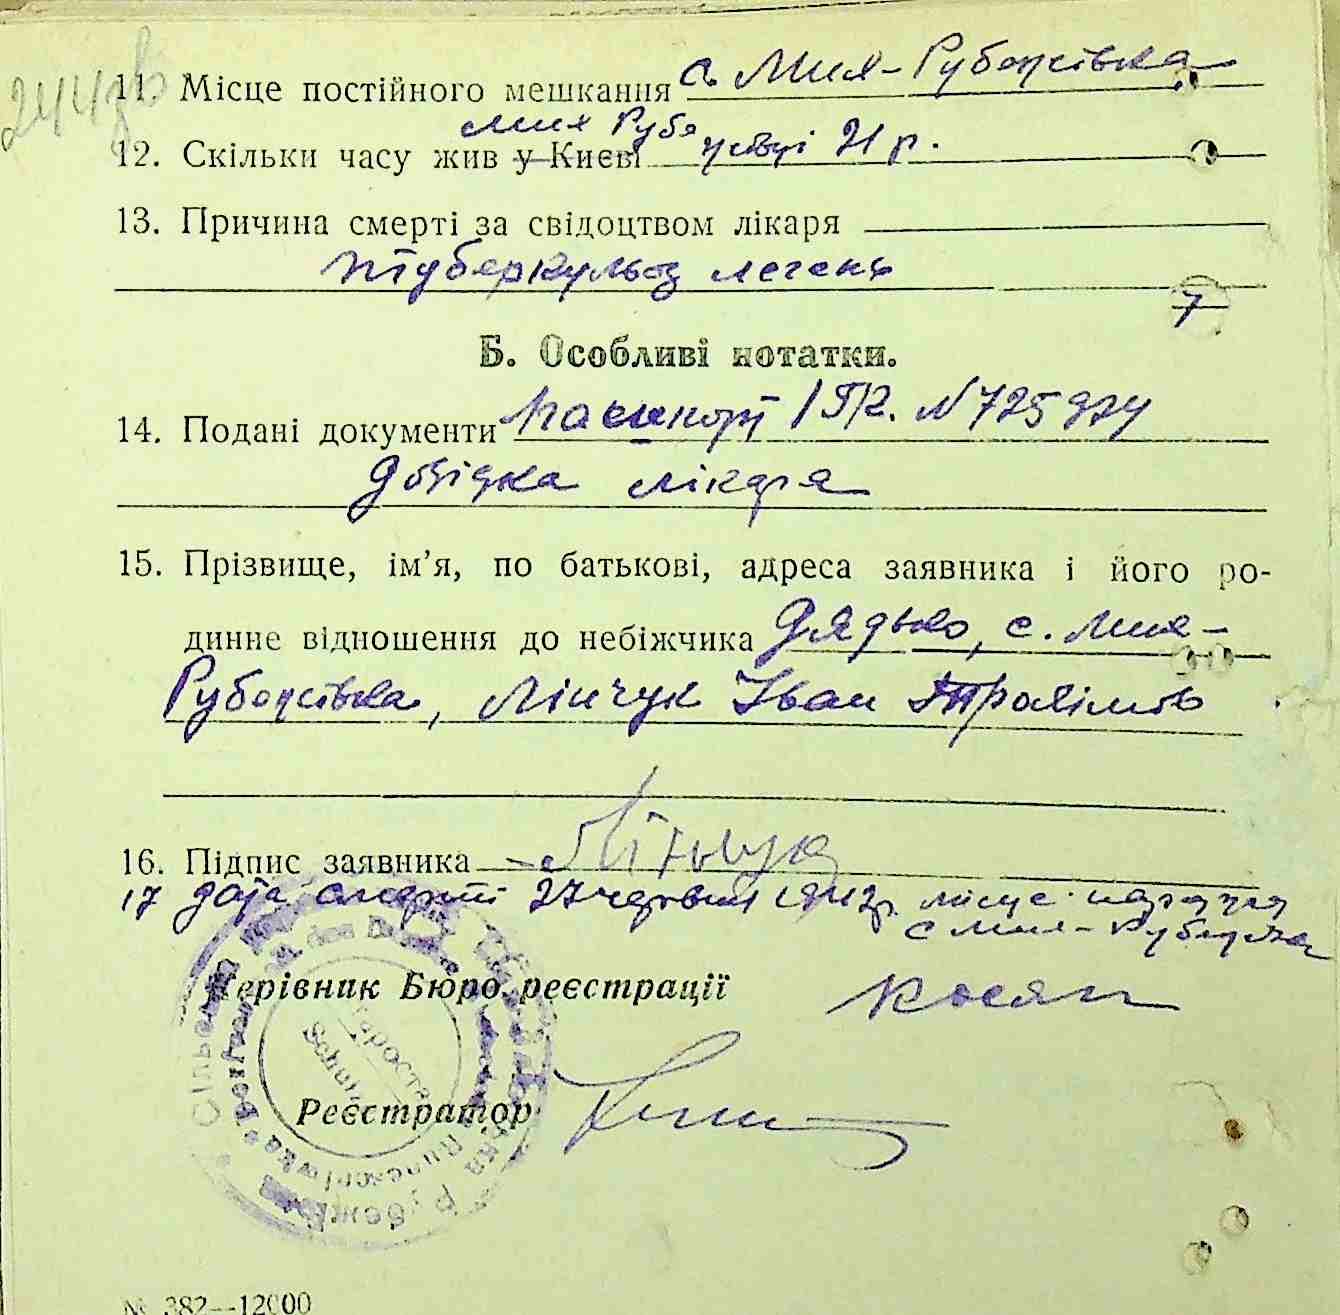 11. Місце постійного мешкання с. Мик-Рубежівка
12. Скільки часу жив у Києві 21 р.
13. Причина смерті за свідоцтвом лікаря
туберкульоз легень
7
Б. Особливі нотатки.
14. Подані документи пашпорт ІПК. N 725974
Довідка лікаря
15. Прізвище, ім’я, по батькові, адреса заявника і його ро-
динне відношення до небіжчика Дядько, с. Мик-
Рубежівка, Лінчук Іван Трохімов
16. Підпис заявника
17 дата смерті 27 червня 1942р. місце
с Мик-
Керівник Бюро реєстрації
Староста
Schulz
Реєстратор
№ 382—12000